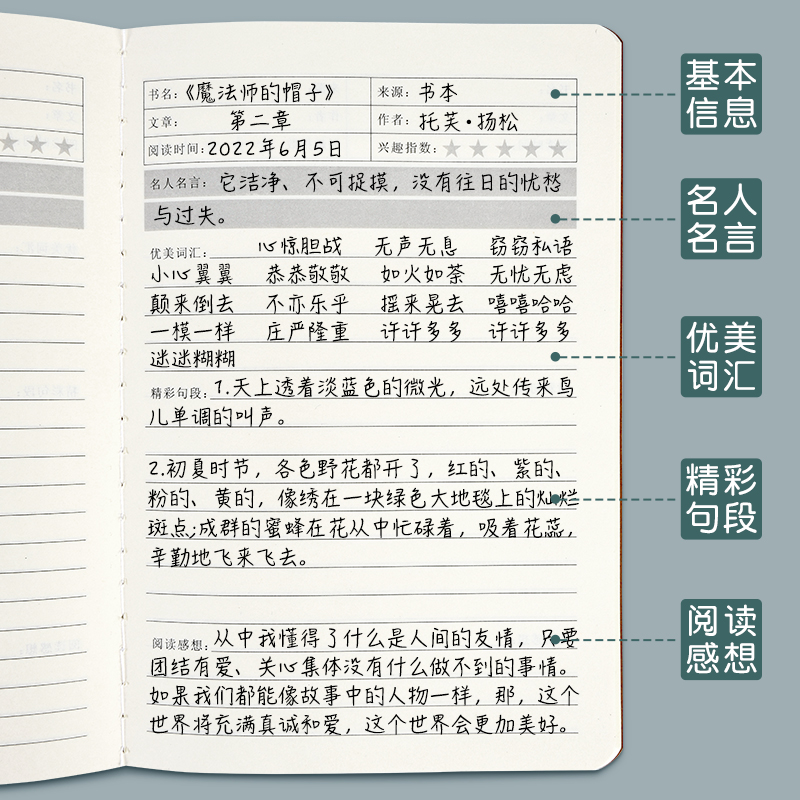 书名：《魔法师的帽子》 来源：书本
文章： 第二章 作者：托芙·扬松
阅读时间：2022年6月5日 兴趣指数：
名人名言：它洁净、不可捉摸，没有往日的忧愁
与过失。
优美词汇： 心惊胆战 无声无息 窃窃私语
小心翼翼 恭恭敬敬 如火如荼 无忧无虑
颠来倒去 不亦乐乎 摇来晃去 嘻嘻哈哈
一模一样 庄严隆重 许许多多 许许多多
迷迷糊糊
精彩句段：1.天上透着淡蓝色的微光，远处传来鸟
儿单调的叫声。
2.初夏时节，各色野花都开了，红的、紫的、
粉的、黄的，像绣在一块绿色大地毯上的灿烂
斑点;成群的蜜蜂在花从中忙碌着，吸着花蕊，
辛勤地飞来飞去。
阅读感想：从中我懂得了什么是人间的友情，只要
团结有爱、关心集体没有什么做不到的事情。
如果我们都能像故事中的人物一样，那，这个
世界将充满真诚和爱，这个世界会更加美好。
基本
信息
名人
名言
优美
词汇
精彩
句段
阅读
感想